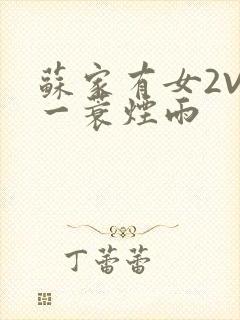 蘇家有女2V
一蓑煙雨
丁蕾蕾